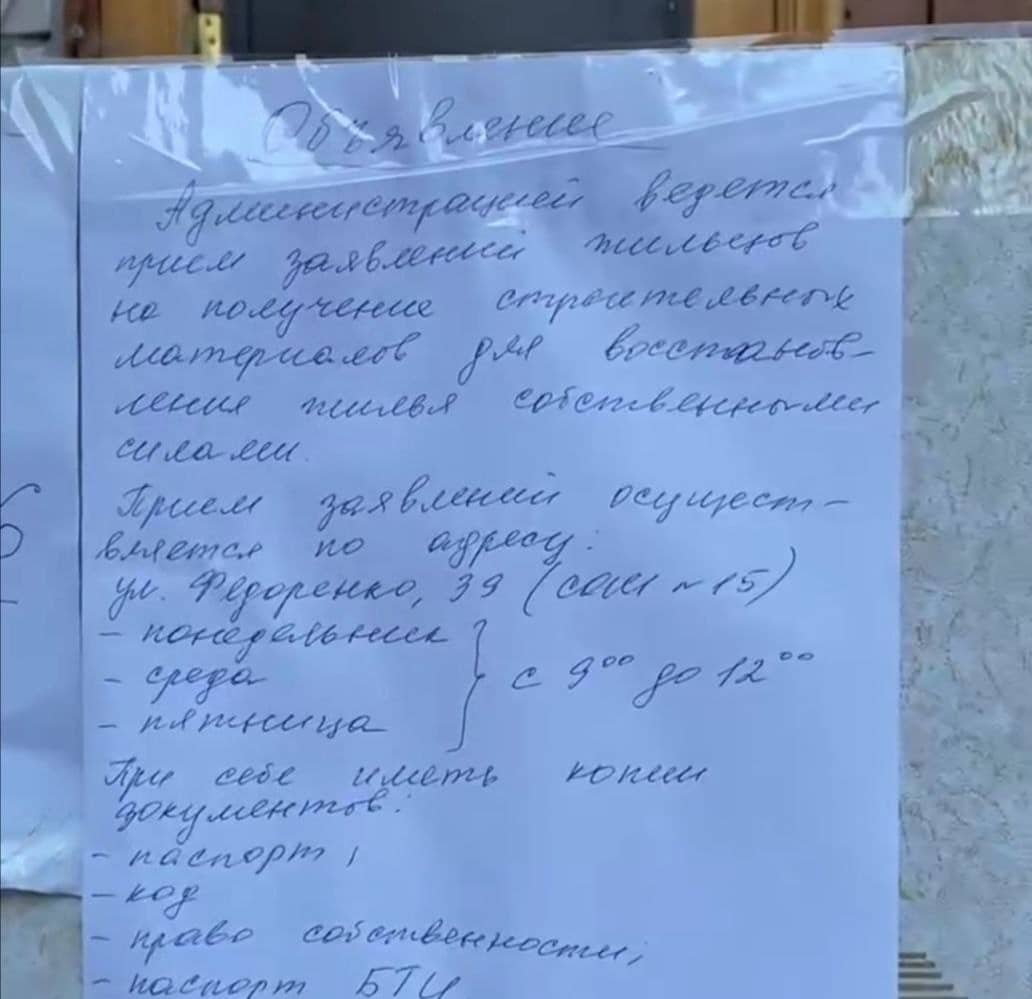 Объявление
Администрацией ведется
прием заявлений жильцов
на получение строительных
материалов для восстанов-
ления жилья собственными
силами.
Прием заявлений осущест-
вляется по адресу:
ул. Федоренко, 39 (сош №15)
- понедельник
- среда
- пятница
с 9⁰⁰ до 12⁰⁰
При себе иметь копии
документов:
- паспорт,
- код
- право собственности,
- паспорт БТИ